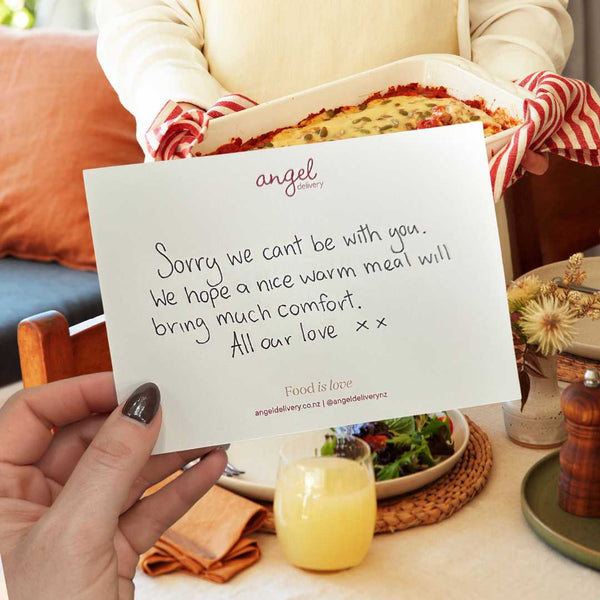 angel
delivery
Sorry we cant be with you.
We hope a nice warm meal will
bring much comfort.
All our love x x
Food is love
angeldelivery.co.nz | @angeldeliverynz